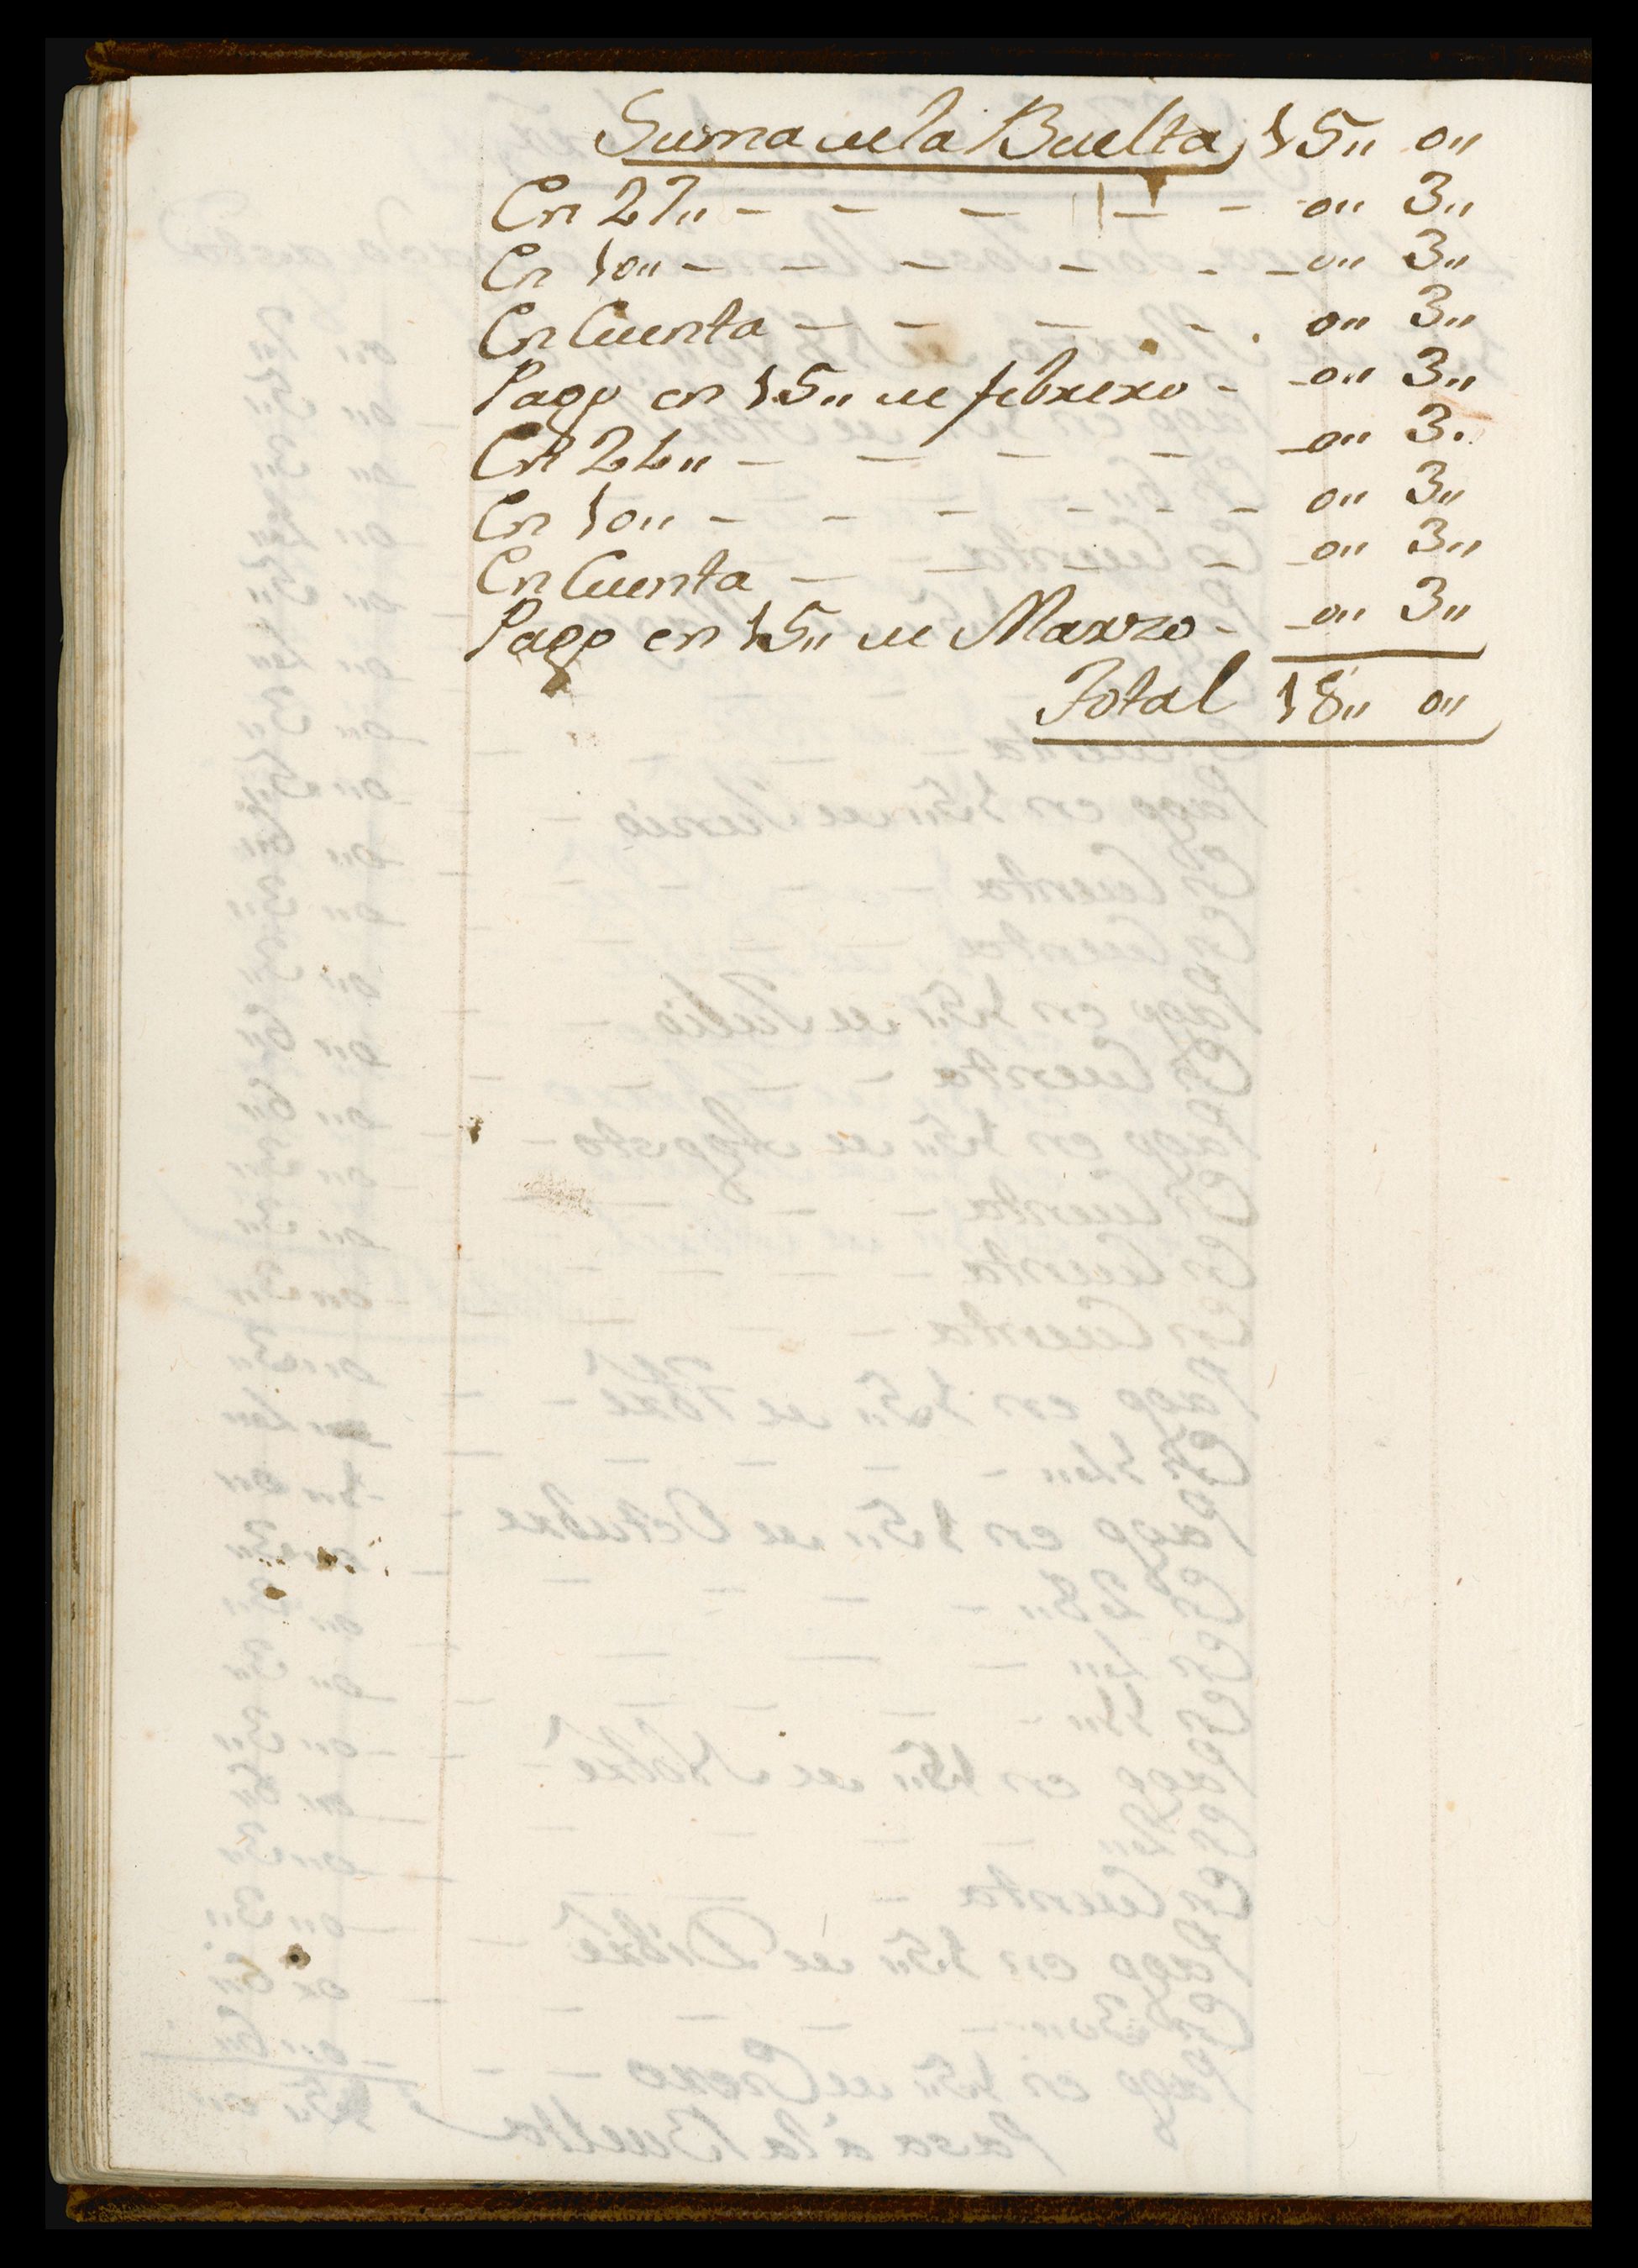 Suma de la Buelta 15,, 0,,
En 27,, - - - - - 0,, 3,,
En 10,, - - - - - 0,, 3,,
En Cuenta - - - - 0,, 3,,
Pago en 15,, de febrero - 0,, 3,,
En 22,, - - - - 0,, 3.
En 10,, - - - - - 0,, 3,,
En Cuenta - - - - 0,, 3,,
Pago en 15,, de Marzo - 0,, 3,,
Total 18,, 0,,